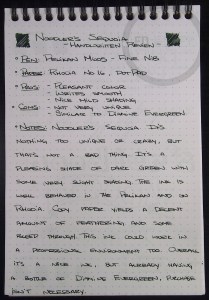 NOODLER'S SEQUOIA
- HANDWRITTEN REVIEW -
• PEN: PELIKAN M205 - FINE NIB
• PAPER: RHODIA NO 16, DOTPAD
• PROS: - PLEASANT COLOR
- WRITES SMOOTH
- NICE MILD SHADING
• CONS: - NOT VERY UNIQUE
- SIMILAR TO DIAMINE EVERGREEN
• NOTES: NOODLER'S SEQUOIA IS
NOTHING TOO UNIQUE OR CRAZY, BUT
THAT'S NOT A BAD THING. IT'S A
PLEASING SHADE OF DARK GREEN WITH
SOME VERY SLIGHT SHADING. THE INK IS
WELL BEHAVED IN THE PELIKAN AND ON
RHODIA. COPY PAPER YIELDS A DECENT
AMOUNT OF FEATHERING, AND SOME
BLEED THROUGH. THIS INK COULD WORK IN
A PROFESSIONAL ENVIRONMENT TOO. OVERALL
IT'S A NICE INK, BUT ALREADY HAVING
A BOTTLE OF DIAMINE EVERGREEN, PURCHASE
ISN'T NECESSARY.